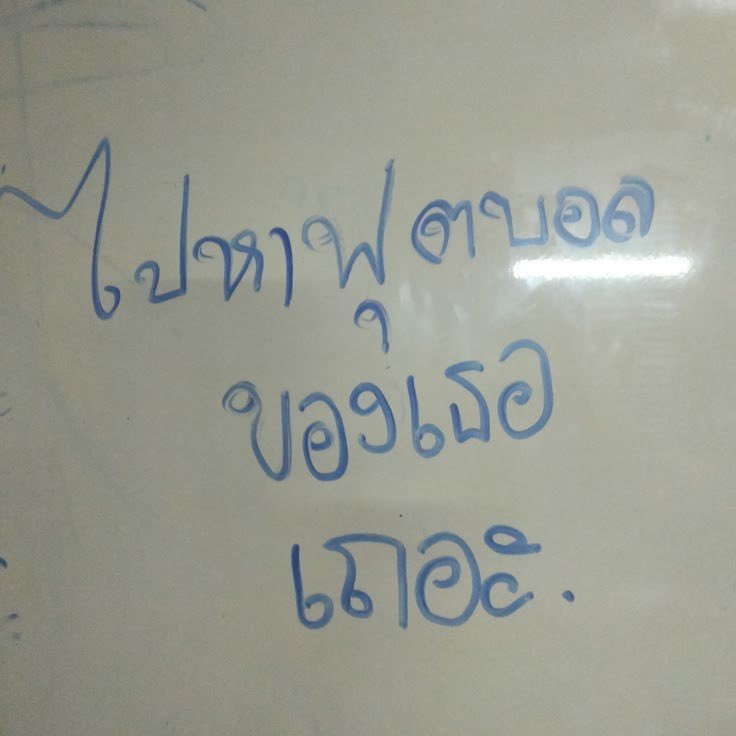 ไปหาฟุตบอล
ของเธอ
เถอะ.